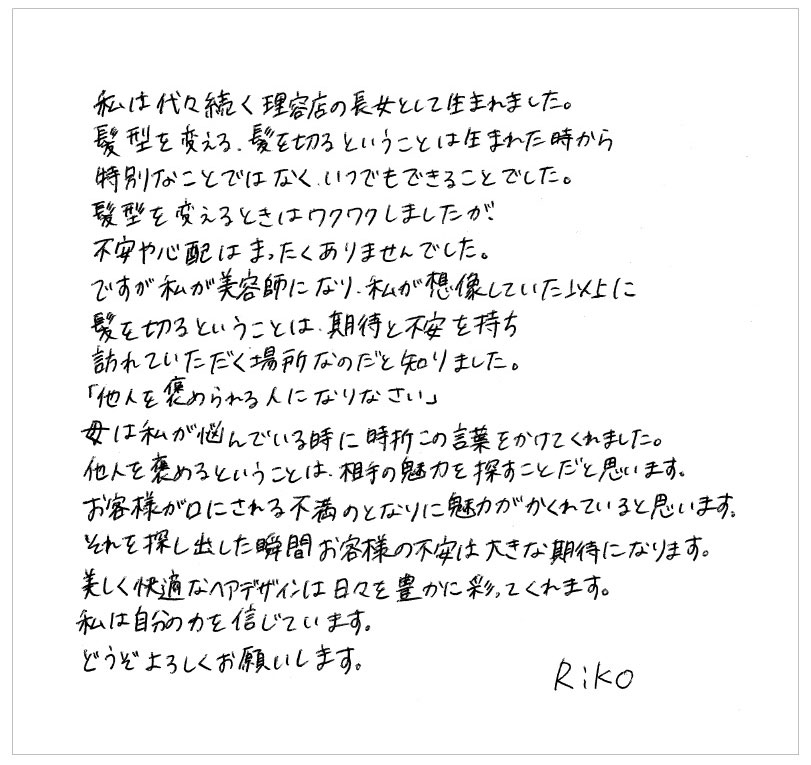 私は代々続く理容店の長女として生まれました。
髪型を変える、髪を切るということは生まれた時から
特別なことではなく、いつでもできることでした。
髪型を変えるときはワクワクしましたが
不安や心配はまったくありませんでした。
ですが私が美容師になり、私が想像していた以上に
髪を切るということは、期待と不安を持ち
訪れていただく場所なのだと知りました。
「他人を褒められる人になりなさい」
母は私が悩んでいる時に時折この言葉をかけてくれました。
他人を褒めるということは、相手の魅力を探すことだと思います。
お客様が口にされる不満のとなりに魅力がかくれていると思います。
それを探し出した瞬間お客様の不安は大きな期待になります。
美しく快適なヘアデザインは日々を豊かに彩ってくれます。
私は自分の力を信じています。
どうぞよろしくお願いします。
Riko